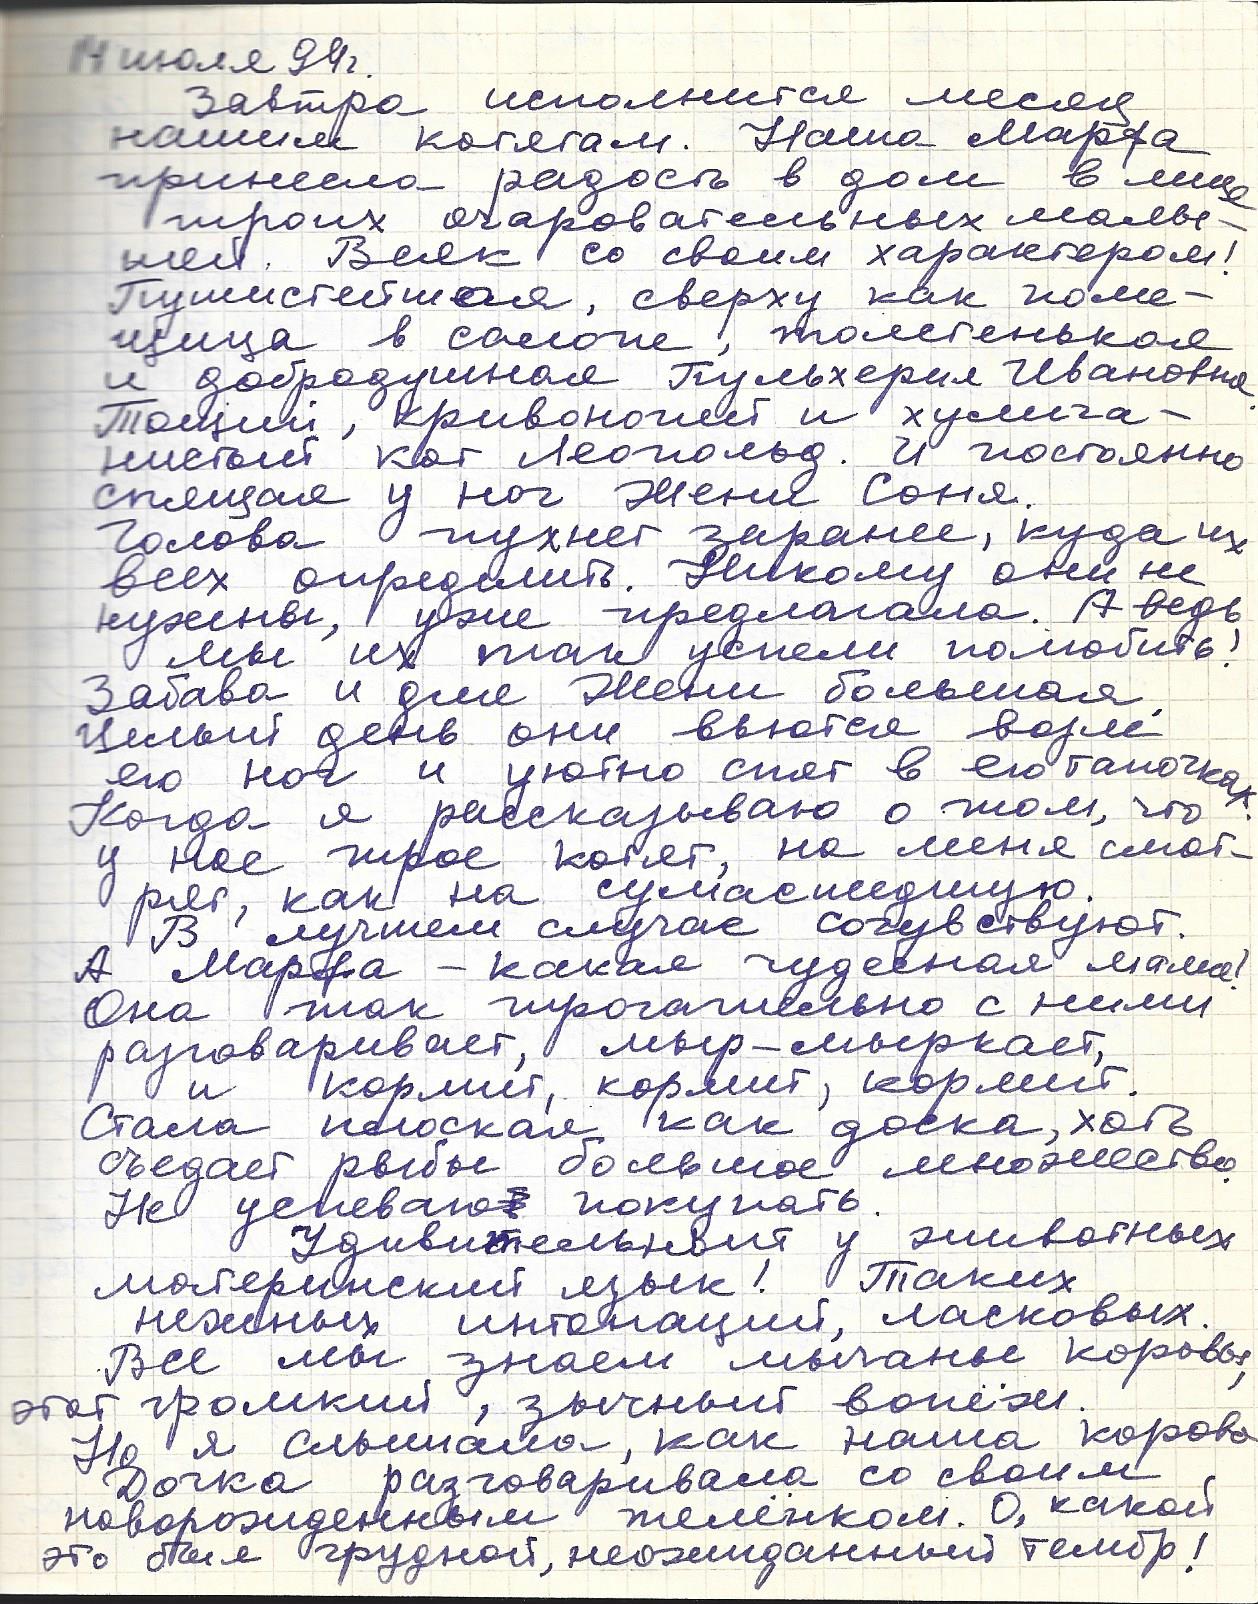 14 июля 94г.
Завтра исполнится месяц
нашим котятам. Наша Марфа
принесла радость в дом в лице
троих очаровательных малы-
шей. Всяк со своим характером!
Пушистейшая, сверху как поме-
щица в салопе, толстенькая
и добродушная Пульхерия Ивановна.
Тощий, кривоногий и хулига-
нистый кот Леопольд. И постоянно
спящая у ног Жени Соня.
Голова пухнет заранее, куда их
всех определить. Никому они не
нужны, уже предлагала. А ведь
мы их так успели полюбить!
Забава и для Жени большая.
Целый день они вьются возле
его ног и уютно спят в его тапочках.
Когда я рассказываю о том, что
у нас трое котят, на меня смот-
рят, как на сумасшедшую.
В лучшем случае сочувствуют.
А Марфа – какая чудесная мама!
Она так трогательно с ними
разговаривает, мыр-мыркает,
и кормит, кормит, кормит.
Стала плоская как доска, хоть
съедает рыбы большое множество.
Не успеваю покупать.
Удивительный у животных
материнский язык! Таких
нежных интонаций, ласковых.
Все мы знаем мычанье коровы,
этот громкий, зычный вопёж.
Но я слышала, как наша корова
Дочка разговаривала со своим
новорожденным телёнком. О, какой
это был грудной, неожиданный тембр!